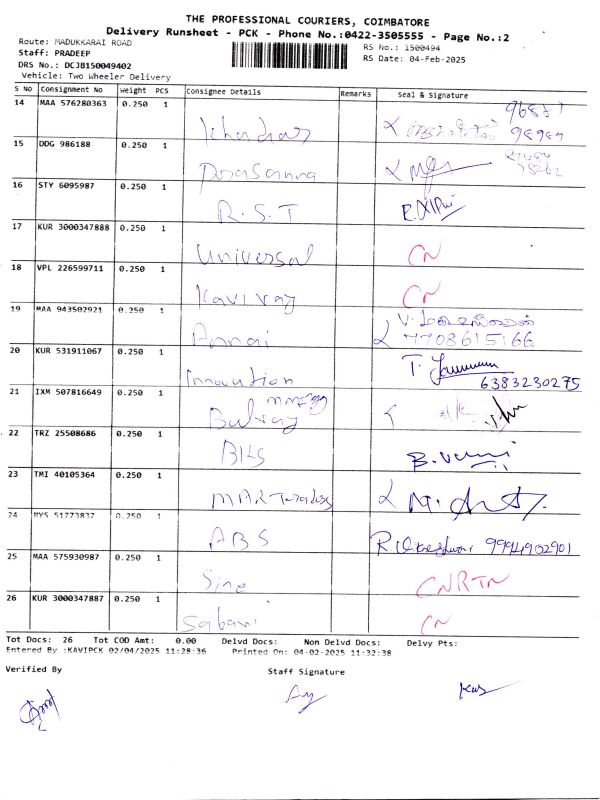 THE PROFESSIONAL COURIERS, COIMBATORE
Delivery Runsheet - PCK - Phone No.:0422-3505555 - Page No.:2
Route: MADUKKARAI ROAD
RS No.: 1500494
Staff: PRADEEP
RS Date: 04-Feb-2025
DRS No.: DCJB150049402
Vehicle: Two Wheeler Delivery
S No Consignment No Weight PCS Consignee Details Remarks Seal & Signature
14 MAA 576280363 0.250 1
15 DDG 986188 0.250 1 Prasanna
16 STY 6095987 0.250 1 R.S.T
17 KUR 3000347888 0.250 1 Universal CN
18 VPL 226599711 0.250 1 Kaviraj CN
19 MAA 943502921 0.250 1 Annai
7708615166
20 KUR 531911067 0.250 1 Innovation T.
6383230275
21 IXM 507816649 0.250 1 Balraj
22 TRZ 25508686 0.250 1 B.
23 TMI 40105364 0.250 1 MAR Traders
24 MYS 51773837 0.250 1 ABS 9994902901
25 MAA 575930987 0.250 1 CNRTN
26 KUR 3000347887 0.250 1 Sabani CN
Tot Docs: 26 Tot COD Amt: 0.00 Delvd Docs: Non Delvd Docs: Delvy Pts:
Entered By :KAVIPCK 02/04/2025 11:28:36 Printed On: 04-02-2025 11:32:38
Verified By Staff Signature